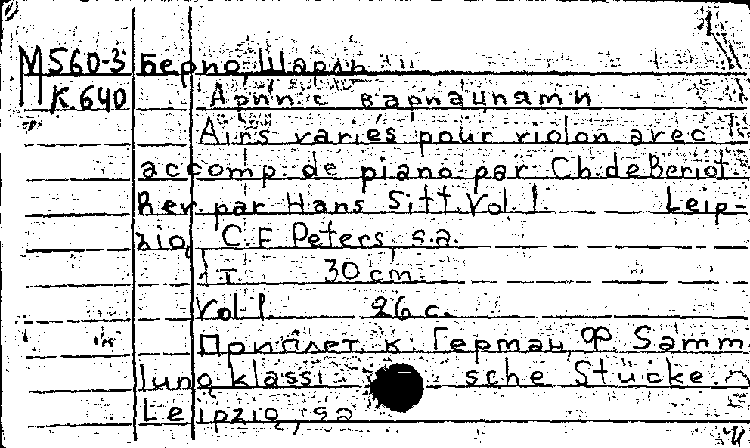 М560-3 Берио, Шарль
К.640 Арии с вариациями
Airs varies pour violon avec
accomp. de piano par Ch. de Beriot.
Rev. par Hans Sitt. Vol. 1. Leip-
zig, C. F. Peters, s.a.
1 т. 30 cm.
Vol 1. 26 с.
Приплет. к: Герман, Ф. Samm
lung klassi sche Stücke.
Leipzig, s.a.